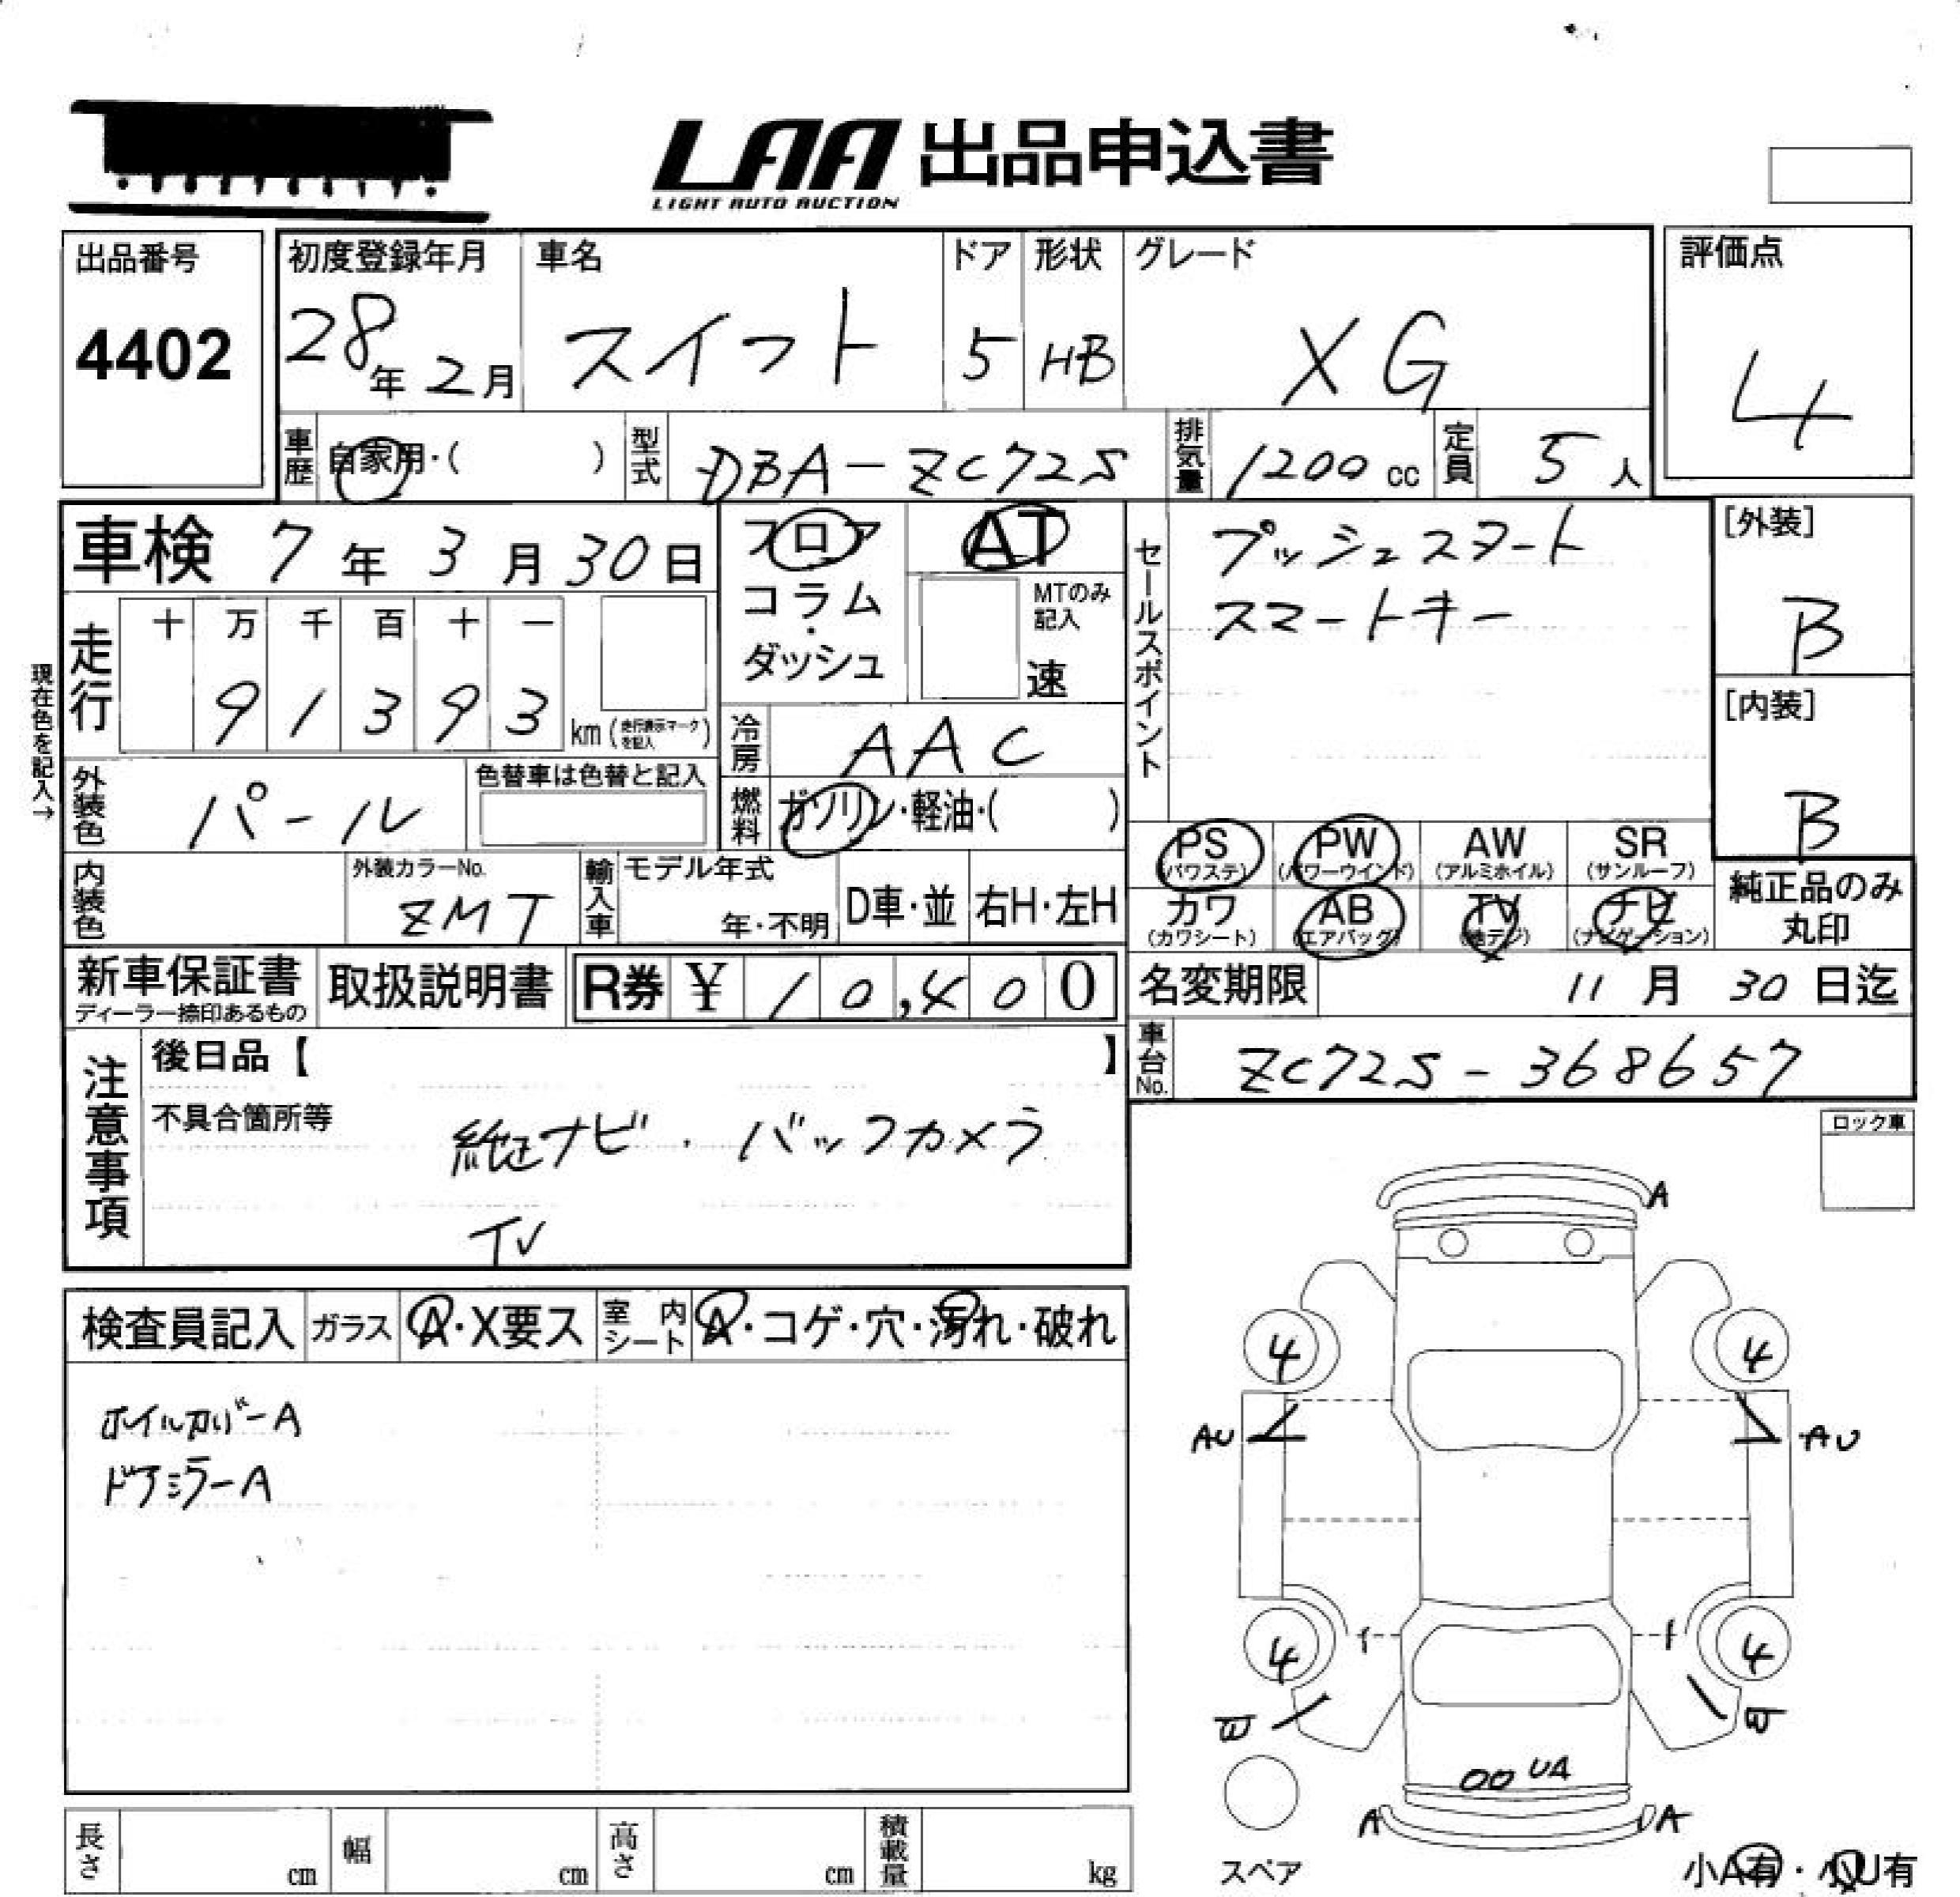 LAA 出品申込書
LIGHT AUTO AUCTION
出品番号
4402
初度登録年月
28年2月
車名
スイフト
ドア
5
形状
HB
グレード
XG
評価点
4
車歴 自家用・( )
型式 DBA-ZC72S
排気量 1200 cc
定員 5 人
車検 7年3月30日
フロア
コラム
・
ダッシュ
AT
MTのみ
記入
速
セールスポイント
プッシュスタート
スマートキー
[外装]
B
[内装]
B
現在色を記入→
走行
十 万 千 百 十 一
9 1 3 9 3
km (走行表示マークを記入)
冷房 AAC
外装色 パール
色替車は色替と記入
燃料 ガソリン・軽油・( )
PS (パワステ)
PW (パワーウインド)
AW (アルミホイル)
SR (サンルーフ)
カワ (カワシート)
AB (エアバッグ)
TV (地デジ)
ナビ (ナビゲーション)
純正品のみ
丸印
内装色
外装カラーNo.
ZMT
輸入車
モデル年式
年・不明
D車・並
右H・左H
新車保証書
ディーラー捺印あるもの
取扱説明書
R券 ¥ 10,400
名変期限 11月30日迄
車台No. ZC72S-368657
注意事項
後日品【 】
不具合箇所等
純正ナビ・バックカメラ
TV
ロック車
検査員記入
ガラス A・X要ス
室内シート A・コゲ・穴・汚れ・破れ
ホイルカバーA
ドアミラーA
A
4 4
AU AU
4 4
UA
A A
スペア
小A有・小U有
長さ cm
幅 cm
高さ cm
積載量 kg